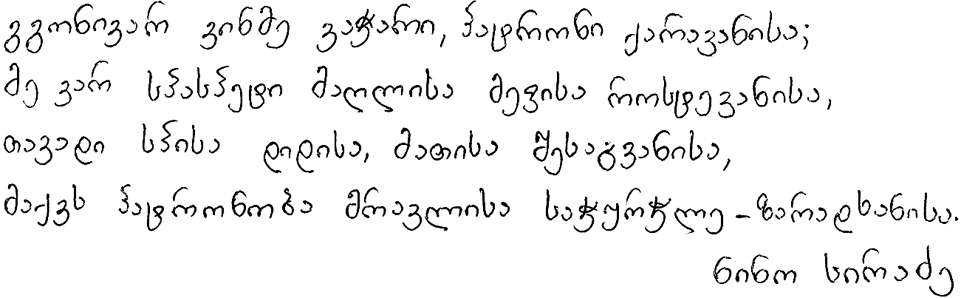 გგონივარ ვინმე ვაჭარი, პატრონი ქარავანისა;
მე ვარ სპასპეტი მაღლისა მეფისა როსტევანისა,
თავადი სპისა დიდისა, მათისა შესაგვანისა,
მაქვს პატრონობა მრავლისა საჭურჭლე-ზარადხანისა.
ნინო სირაძე